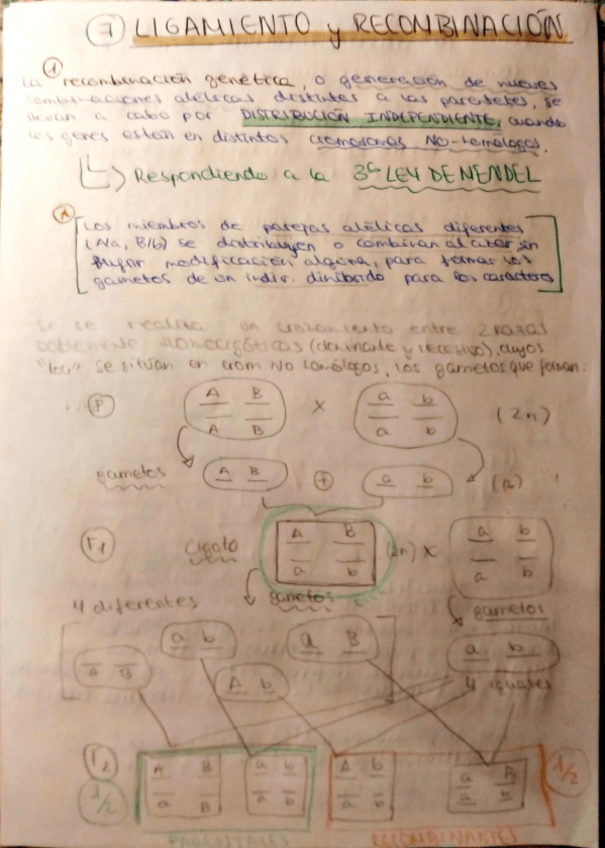 7 LIGAMIENTO y RECOMBINACIÓN
1
La recombinación genética, o generación de nuevas
combinaciones alélicas distintas a las parentales, se
llevan a cabo por DISTRIBUCIÓN INDEPENDIENTE, cuando
los genes estén en distintos cromosomas NO-homólogos.
Respondiendo a la 3ª LEY DE MENDEL
Los miembros de parejas alélicas diferentes
se distribuyen o combinan al azar, sin
modificación alguna, para formar los
gametos de un indiv. dihíbrido para los caracteres
Si se realiza un cruzamiento entre 2 razas
doblemente homocigóticas (dominante y recesivo), cuyos
"loci" se sitúan en crom NO homólogos, los gametos que forman:
P A B X a b (2n)
A B a b
gametos A B + a b (n)
F1 Cigoto A B (2n) X a b
a b a b
4 diferentes gametos gametos
a b a B a b
a B A b 4 iguales
F2 A B a b A b a B 1/2
1/2 a B a b a b a b
PARENTALES RECOMBINANTES